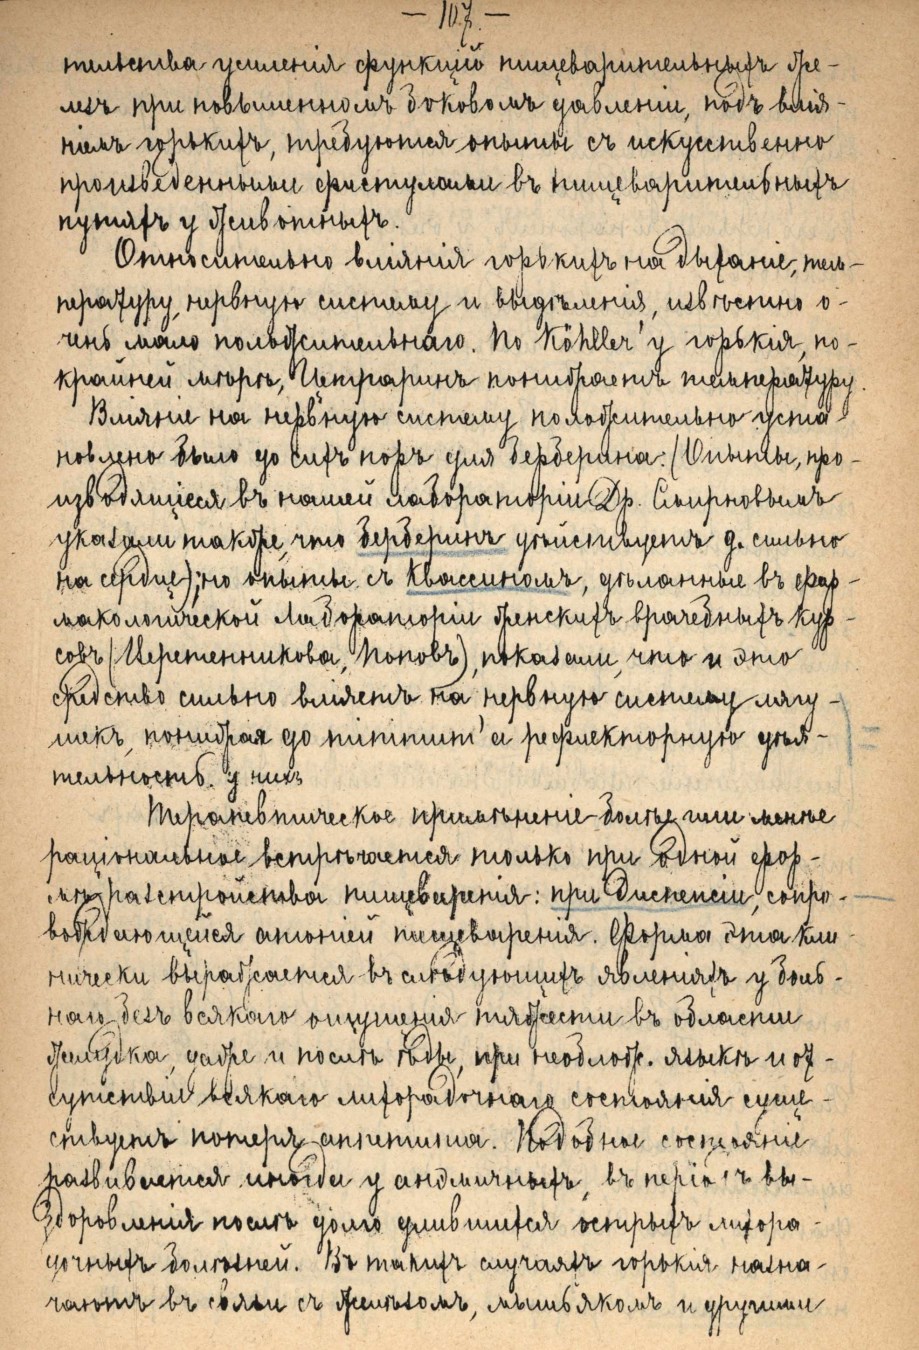 — 107. —
тельства усиленія функцій пищеварительныхъ же-
лезъ при повышенномъ боковомъ давленіи, подъ влія-
ніемъ горькихъ, требуются опыты съ искусственно
произведенными фистулами въ пищеварительныхъ
путяхъ у животныхъ.
Относительно вліянія горькихъ на дыханіе, тем-
пературу, нервную систему и выдѣленія, извѣстно о-
чень мало положительнаго. По Köhller'у горькія, по-
крайней мѣрѣ, Цетраринъ понижаетъ температуру.
Вліяніе на нервную систему положительно уста-
новлено было до сихъ поръ для берберина: (Опыты, про-
изводящіеся въ нашей лабораторіи Др. Смирновымъ
указали также, что берберинъ дѣйствуетъ д. сильно
на сердце); но опыты съ Квассиномъ, дѣланные въ фар-
макологической Лабораторіи женскихъ врачебныхъ кур-
совъ (Черепенникова, Поповъ), показали, что и это
средство сильно вліяетъ на нервную систему лягу-
шекъ, понижая до minimum'а рефлекторную дѣя-
тельность у нихъ
Терапевтическое примѣненіе болѣе или менѣе
раціональное встрѣчается только при одной фор-
мѣ разстройства пищеваренія: при диспепсіи, сопро-
вождающейся атоніей пищеваренія. Форма эта кли-
нически выражается въ слѣдующихъ явленіяхъ у боль-
наго, безъ всякаго ощущенія тяжести въ области
желудка, даже и послѣ ѣды, при необлож. языкѣ и от-
сутствіи всякаго лихорадочнаго состоянія суще-
ствуетъ потеря аппетита. Подобное состояніе
развивается иногда у анемичныхъ, въ періодъ вы-
здоровленія послѣ долго длившихся острыхъ лихора-
дочныхъ болѣзней. Въ такихъ случаяхъ горькія назна-
чаютъ въ связи съ желѣзомъ, мышьякомъ и другими